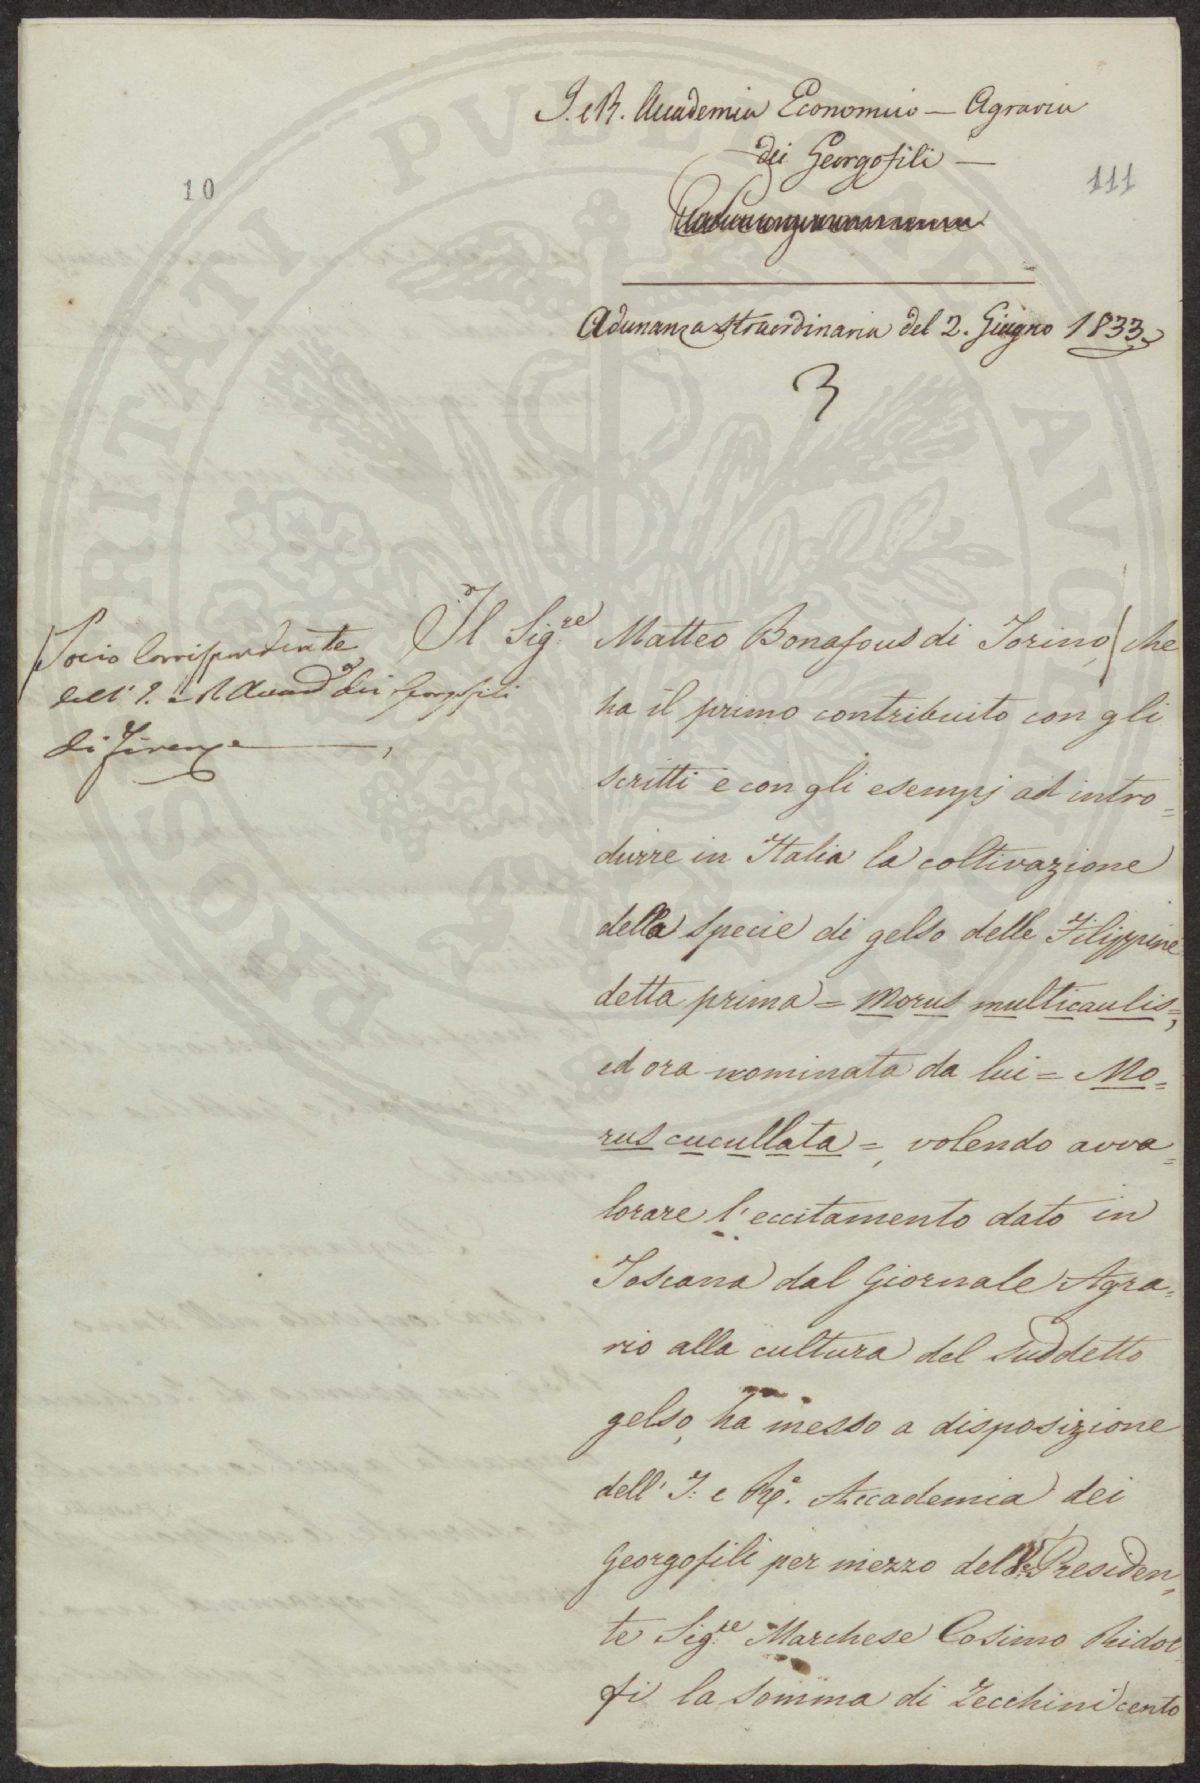 I. e R. Accademia Economico — Agraria
dei Georgofili —
10
111
Adunanza straordinaria del 2. Giugno 1833.
3
Socio Corrispondente
dell' I. e R Accad.a dei Georgofili
di Firenze ,
Il Sig.re Matteo Bonafous di Torino, che
ha il primo contribuito con gli
scritti e con gli esempj ad intro=
durre in Italia la coltivazione
della specie di gelso delle Filippine
detta prima = Morus multicaulis =,
ed ora nominata da lui = Mo=
rus cucullata =, volendo avva=
lorare l'eccitamento dato in
Toscana dal Giornale Agra=
rio alla cultura del suddetto
gelso, ha messo a disposizione
dell' I. e R.e Accademia dei
Georgofili per mezzo del Presiden=
te Sig.re Marchese Cosimo Ridol=
fi la somma di Zecchini cento
PRO SPERITATI PVBLICAE AVGENDAE